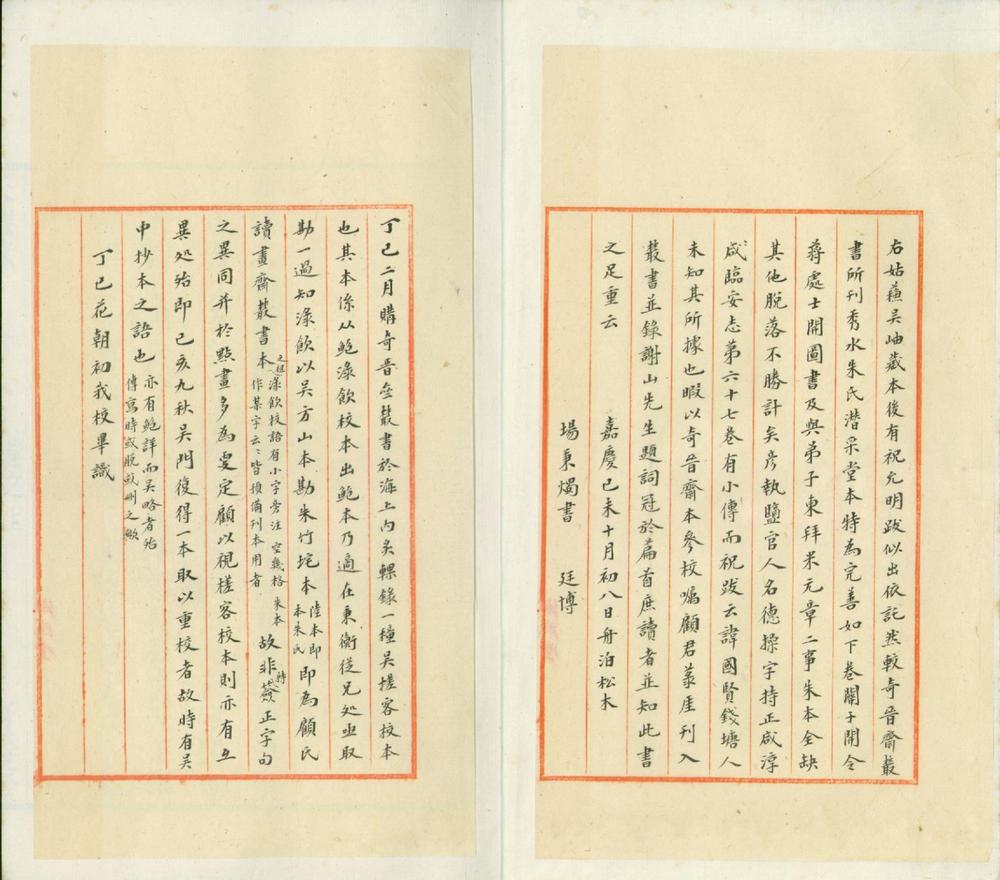 右姑蘇吳岫藏本後有祝允明跋似出依託然較奇晉齋叢
書所刊秀水朱氏潛采堂本特為完善如下卷關子開令
蔣處士開圖書及與弟子東拜米元章二事朱本全缺
其他脫落不勝計矣彥執鹽官人名德操字持正咸淳
咸臨安志第六十七卷有小傳而祝跋云諱國賢錢塘人
未知其所據也暇以奇晉齋本參校囑顧君菉厓刊入
叢書並錄謝山先生題詞冠於篇首庶讀者並知此書
之足重云
嘉慶己未十月初八日舟泊松木
場秉燭書 廷博
丁巳二月購奇晉齋叢書於海上內炙輠錄一種吳槎客校本
也其本係从鮑淥飲校本出鮑本乃適在秉衡從兄処亟取
勘一過知淥飲以吳方山本勘朱竹垞本陸本即本朱氏即為顧氏
讀畫齋叢書本之祖淥飲校語有小字旁注空幾格朱本作某字云〻皆預備刊本用者故非特簽正字句
之異同并於點畫多為更定顧以視槎客校本則亦有互
異処殆即己亥九秋吳門復得一本取以重校者故時有吳
中抄本之語也亦有鮑詳而吳略者殆傳寫時或脫或刪之歟
丁巳花朝初我校畢識